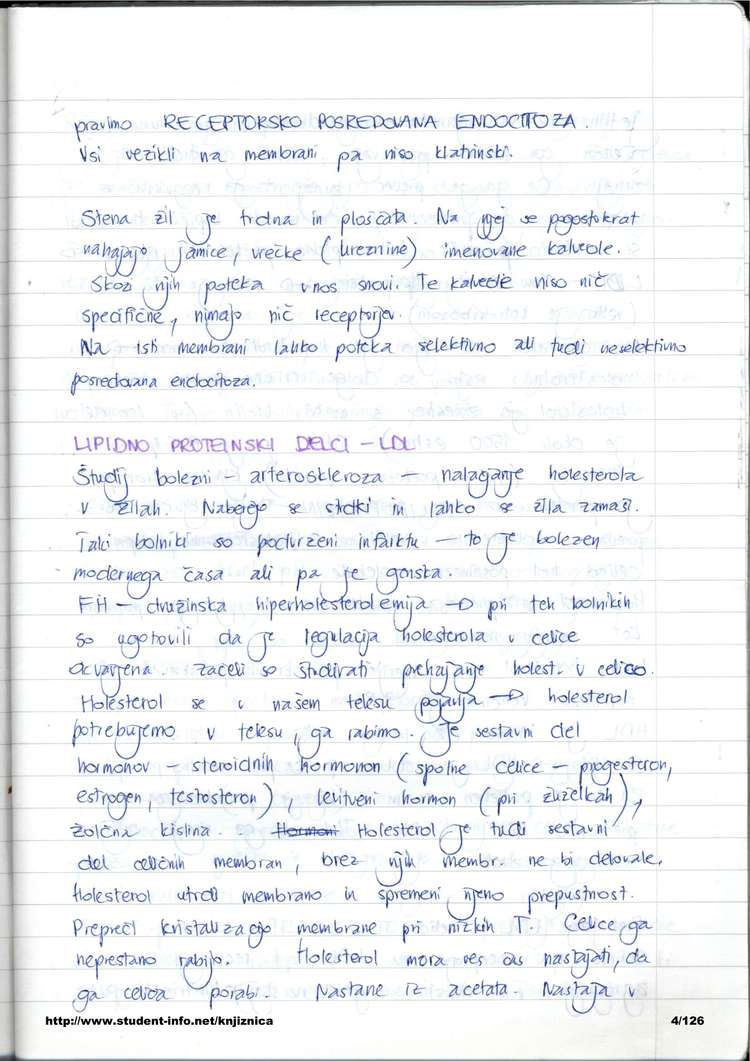 pravimo RECEPTORSKO POSREDOVANA ENDOCITOZA.
Vsi vezikli na membrani pa niso klatrinski.
Stena žil je trdna in ploščata. Na njej se pogostokrat
nahajajo jamice, vrečke (ureznine) imenovane kalveole.
Skozi njih poteka vnos snovi. Te kalveole niso nič
specifične, nimajo nič receptorjev.
Na isti membrani lahko poteka selektivno ali tudi neselektivno
posredovana endocitoza.
LIPIDNO PROTEINSKI DELCI – LDL
Študij bolezni – arteroskleroza – nalaganje holesterola
v žilah. Naberejo se strdki in lahko se žila zamaši.
Taki bolniki so podvrženi infarktu – to je bolezen
modernega časa ali pa je genska.
FH – družinska hiperholesterolemija → pri teh bolnikih
so ugotovili da je regulacija holesterola v celice
okvarjena. Začeli so študirati prehajanje holest. v celico.
Holesterol se v našem telesu pojavlja → holesterol
potrebujemo v telesu, ga rabimo. Je sestavni del
hormonov – steroidnih hormonon (spolne celice – progesteron,
estrogen, testosteron), levitveni hormon (pri žuželkah),
žolčna kislina. Hormoni Holesterol je tudi sestavni
del celičnih membran, brez njih membr. ne bi delovale.
Holesterol utrdi membrano in spremeni njeno prepustnost.
Prepreči kristalizacijo membrane pri nizkih T. Celice ga
neprestano rabijo. Holesterol mora ves čas nastajati, da
ga celica porabi. Nastane iz acetata. Nastaja v
http://www.student-info.net/knjiznica 4/126